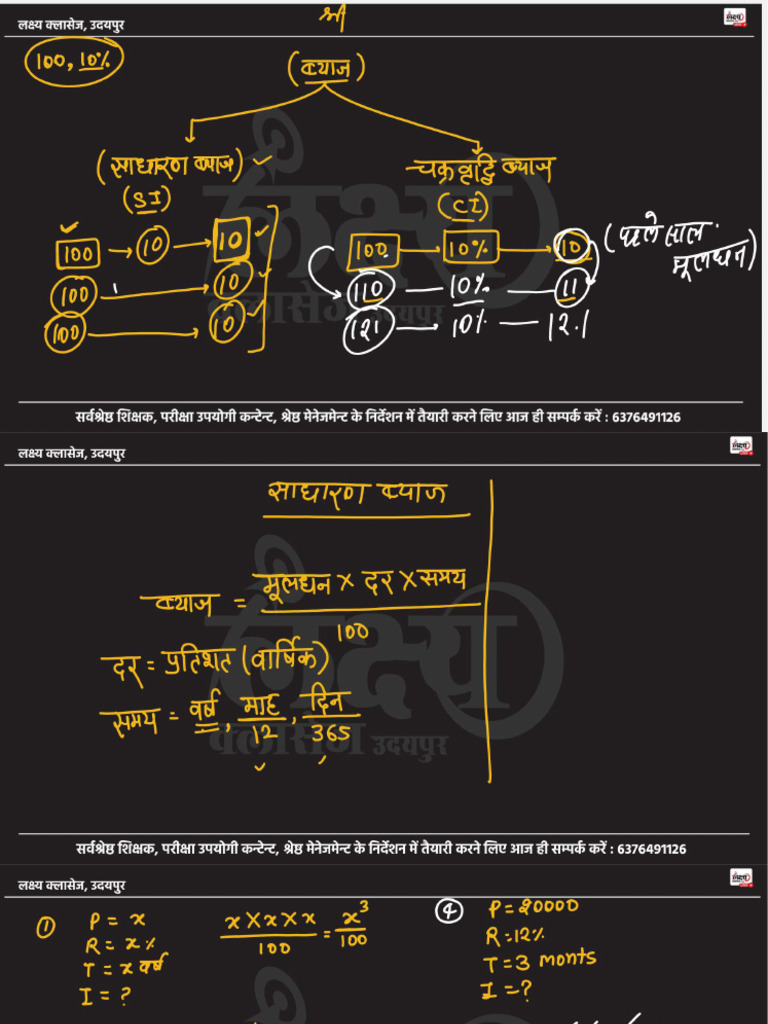 लक्ष्य क्लासेज, उदयपुर
श्री
100, 10%
(ब्याज)
(साधारण ब्याज)
(SI)
चक्रवृद्धि ब्याज
(CI)
100 10 10
100 10
100 10
100 10% 10
110 10% 11
121 10% 12.1
(पहले साल
मूलधन)
लक्ष्य
क्लासेज उदयपुर
सर्वश्रेष्ठ शिक्षक, परीक्षा उपयोगी कन्टेन्ट, श्रेष्ठ मेनेजमेन्ट के निर्देशन में तैयारी करने लिए आज ही सम्पर्क करें : 6376491126
लक्ष्य क्लासेज, उदयपुर
साधारण ब्याज
ब्याज = मूलधन × दर × समय
100
दर = प्रतिशत (वार्षिक)
समय = वर्ष, माह, दिन
12 365
लक्ष्य
क्लासेज उदयपुर
सर्वश्रेष्ठ शिक्षक, परीक्षा उपयोगी कन्टेन्ट, श्रेष्ठ मेनेजमेन्ट के निर्देशन में तैयारी करने लिए आज ही सम्पर्क करें : 6376491126
लक्ष्य क्लासेज, उदयपुर
① P = x
R = x%
T = x वर्ष
I = ?
x × x × x = x³
100 100
④ P = 20000
R = 12%
T = 3 monts
I = ?